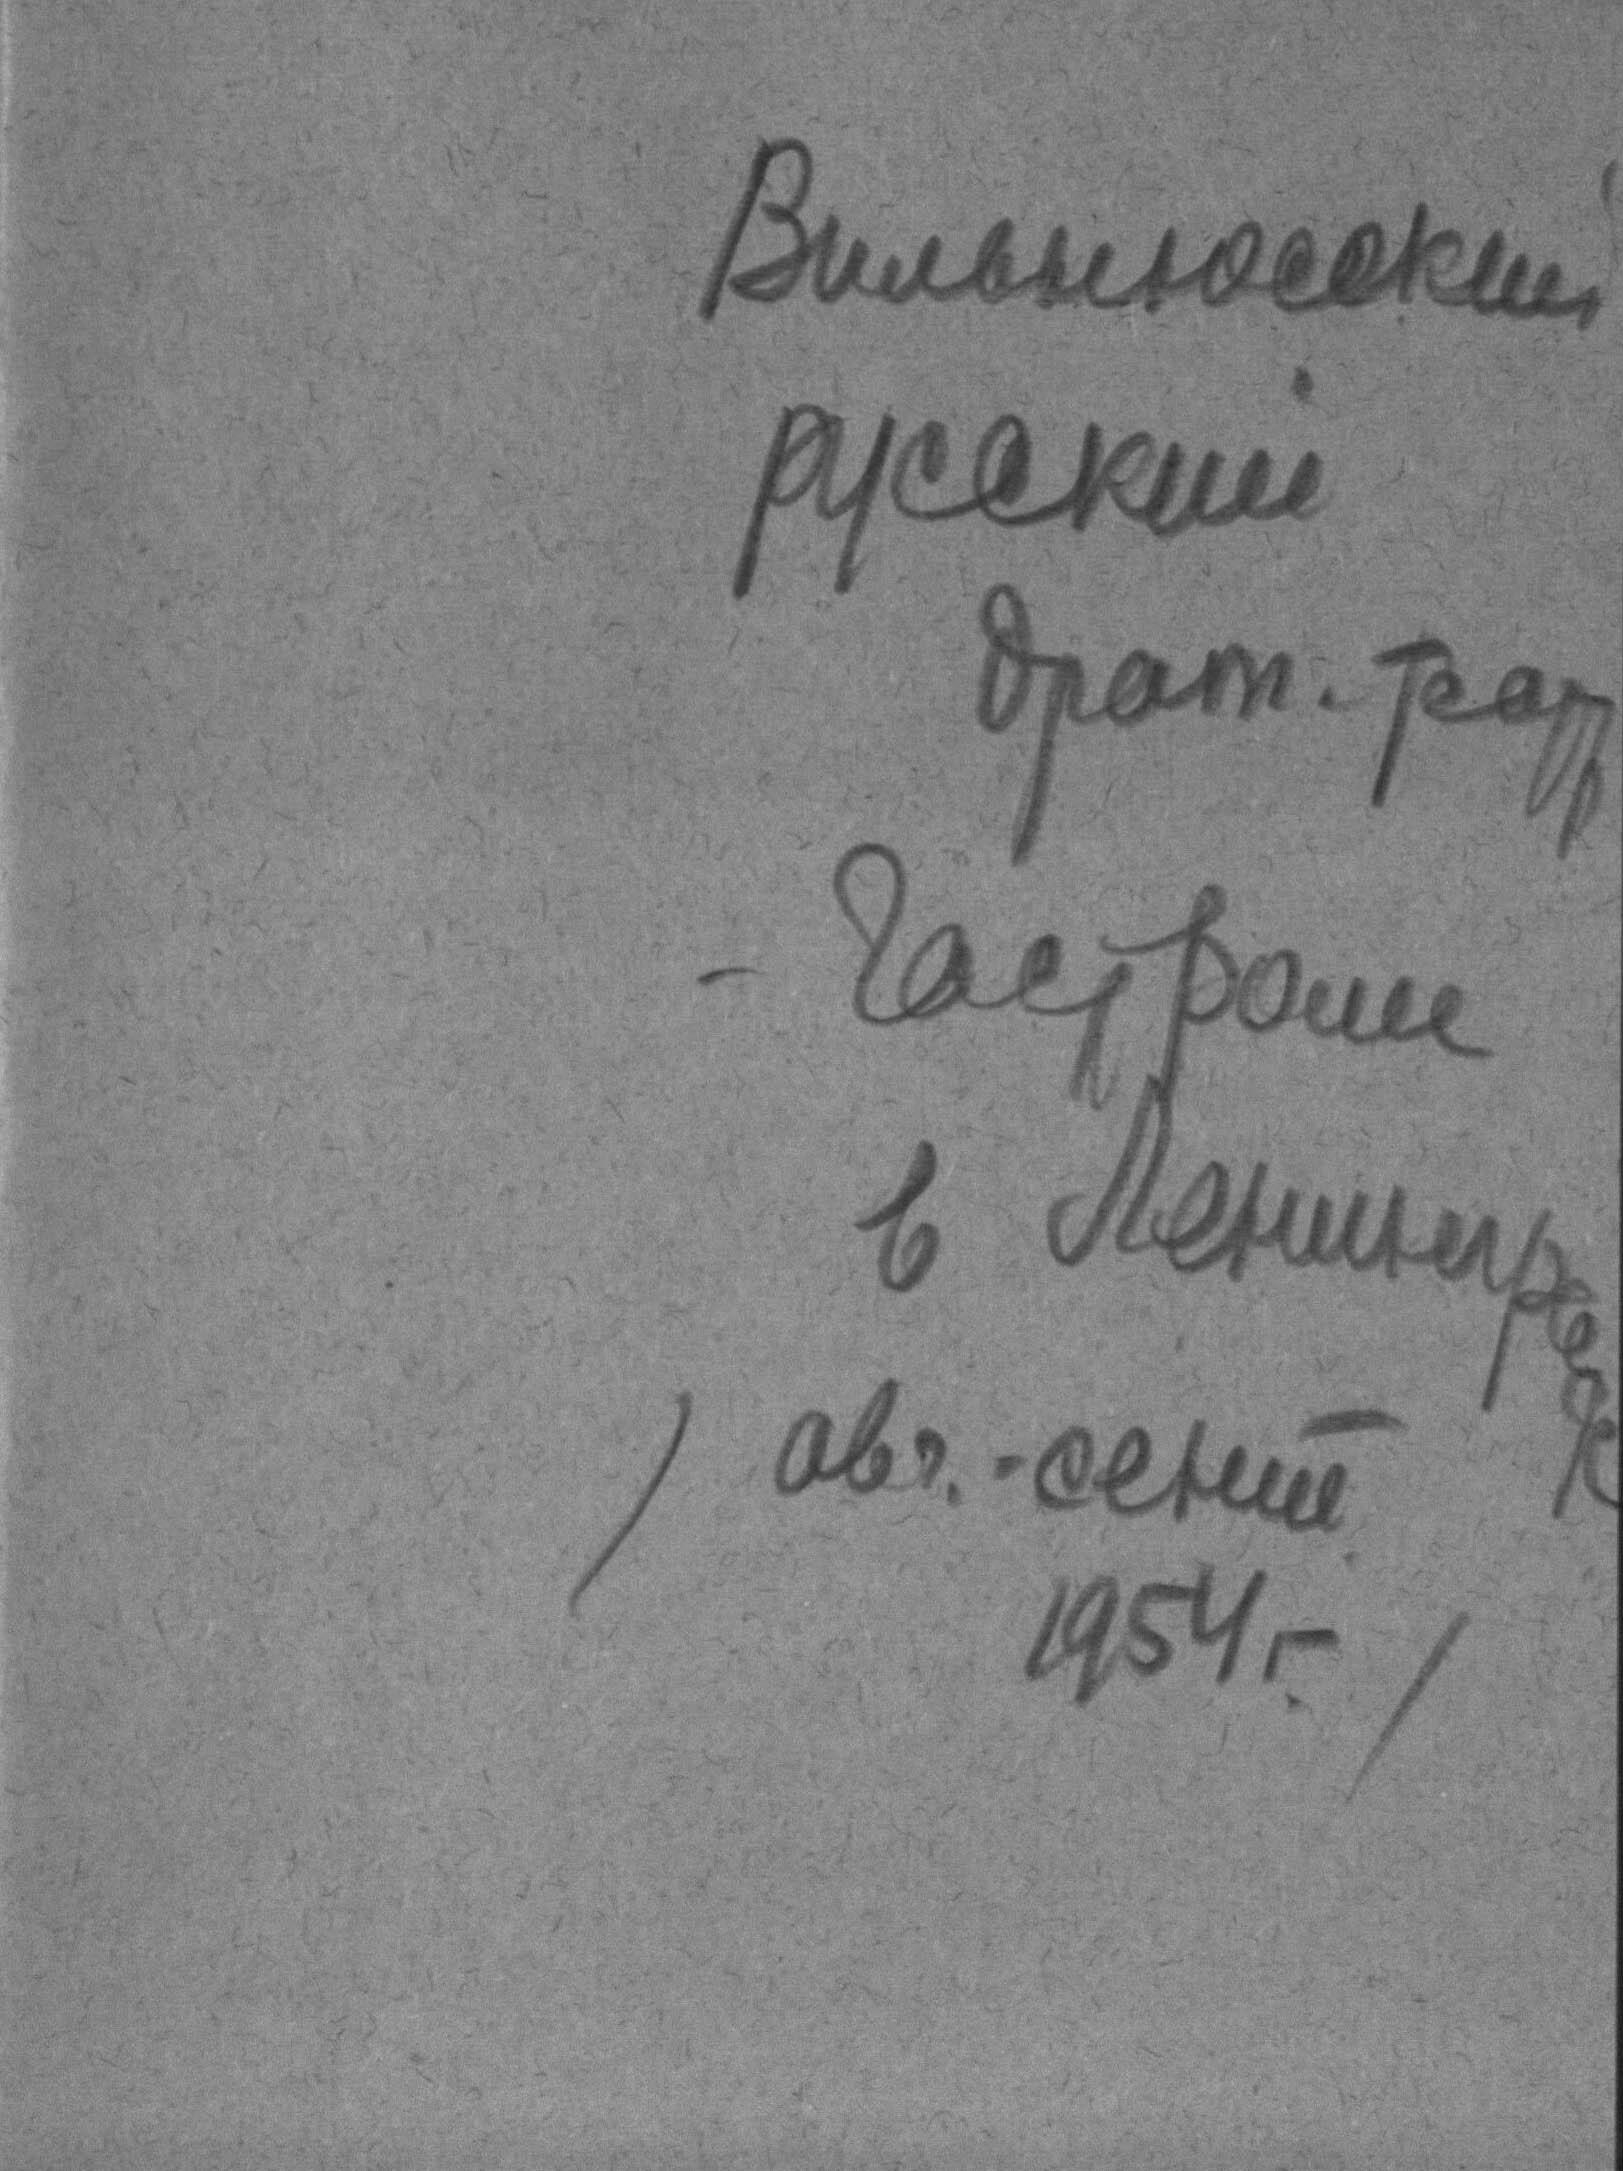 Вильнюсский
русский
драм. театр
- Гастроли
в Ленинграде
/ авг.-сент.
1954 г. /